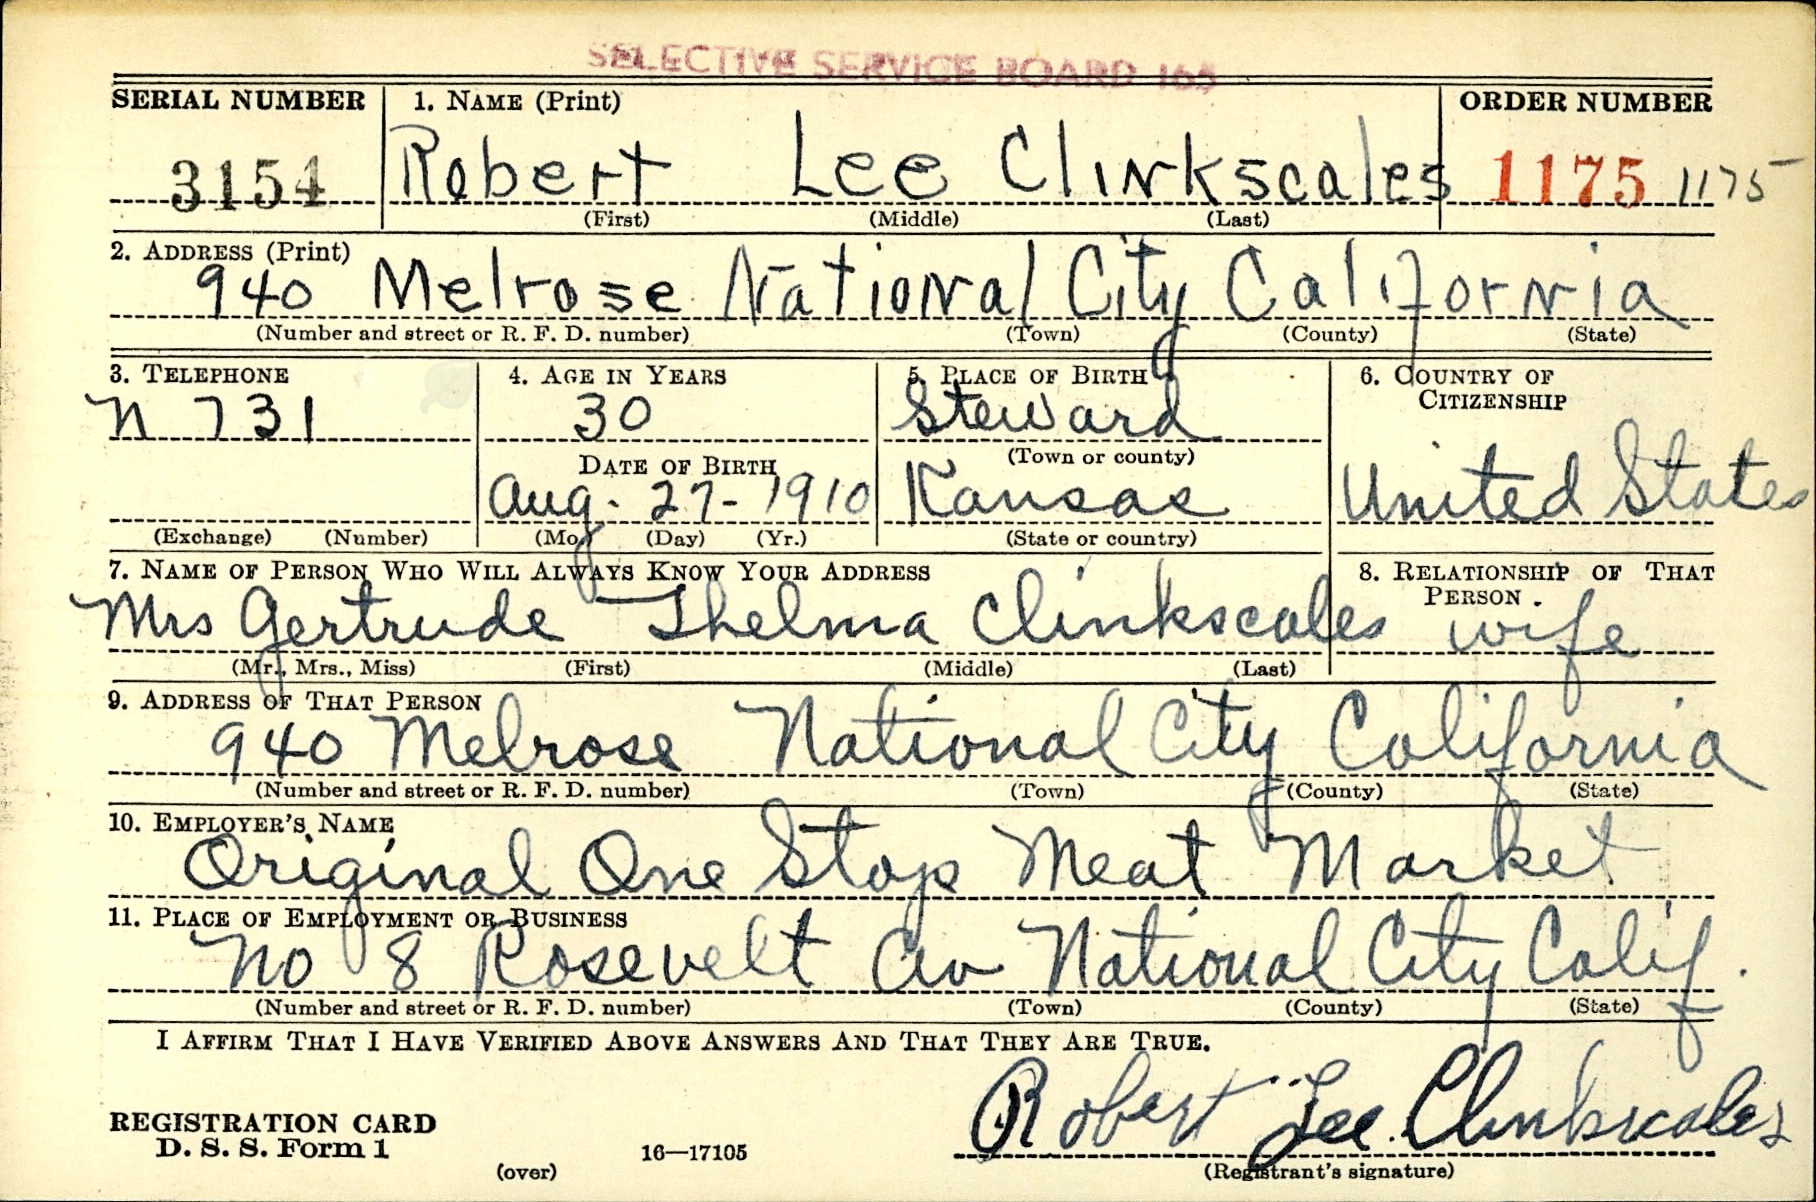 SELECTIVE SERVICE BOARD 165
SERIAL NUMBER 1. NAME (Print) ORDER NUMBER
3154 Robert Lee Clinkscales 1175 1175
(First) (Middle) (Last)
2. ADDRESS (Print)
940 Melrose National City California
(Number and street or R. F. D. number) (Town) (County) (State)
3. TELEPHONE 4. AGE IN YEARS 5. PLACE OF BIRTH 6. COUNTRY OF
CITIZENSHIP
N 731 30 Steward
DATE OF BIRTH (Town or county)
Aug. 27-1910 Kansas United States
(Exchange) (Number) (Mo.) (Day) (Yr.) (State or country)
7. NAME OF PERSON WHO WILL ALWAYS KNOW YOUR ADDRESS 8. RELATIONSHIP OF THAT
PERSON.
Mrs Gertrude Thelma Clinkscales wife
(Mr., Mrs., Miss) (First) (Middle) (Last)
9. ADDRESS OF THAT PERSON
940 Melrose National City California
(Number and street or R. F. D. number) (Town) (County) (State)
10. EMPLOYER'S NAME
Original One Stop Meat Market
11. PLACE OF EMPLOYMENT OR BUSINESS
No 8 Rosevelt Av National City Calif.
(Number and street or R. F. D. number) (Town) (County) (State)
I AFFIRM THAT I HAVE VERIFIED ABOVE ANSWERS AND THAT THEY ARE TRUE.
Robert Lee Clinkscales
REGISTRATION CARD
D. S. S. Form 1
(over) 16—17105 (Registrant's signature)